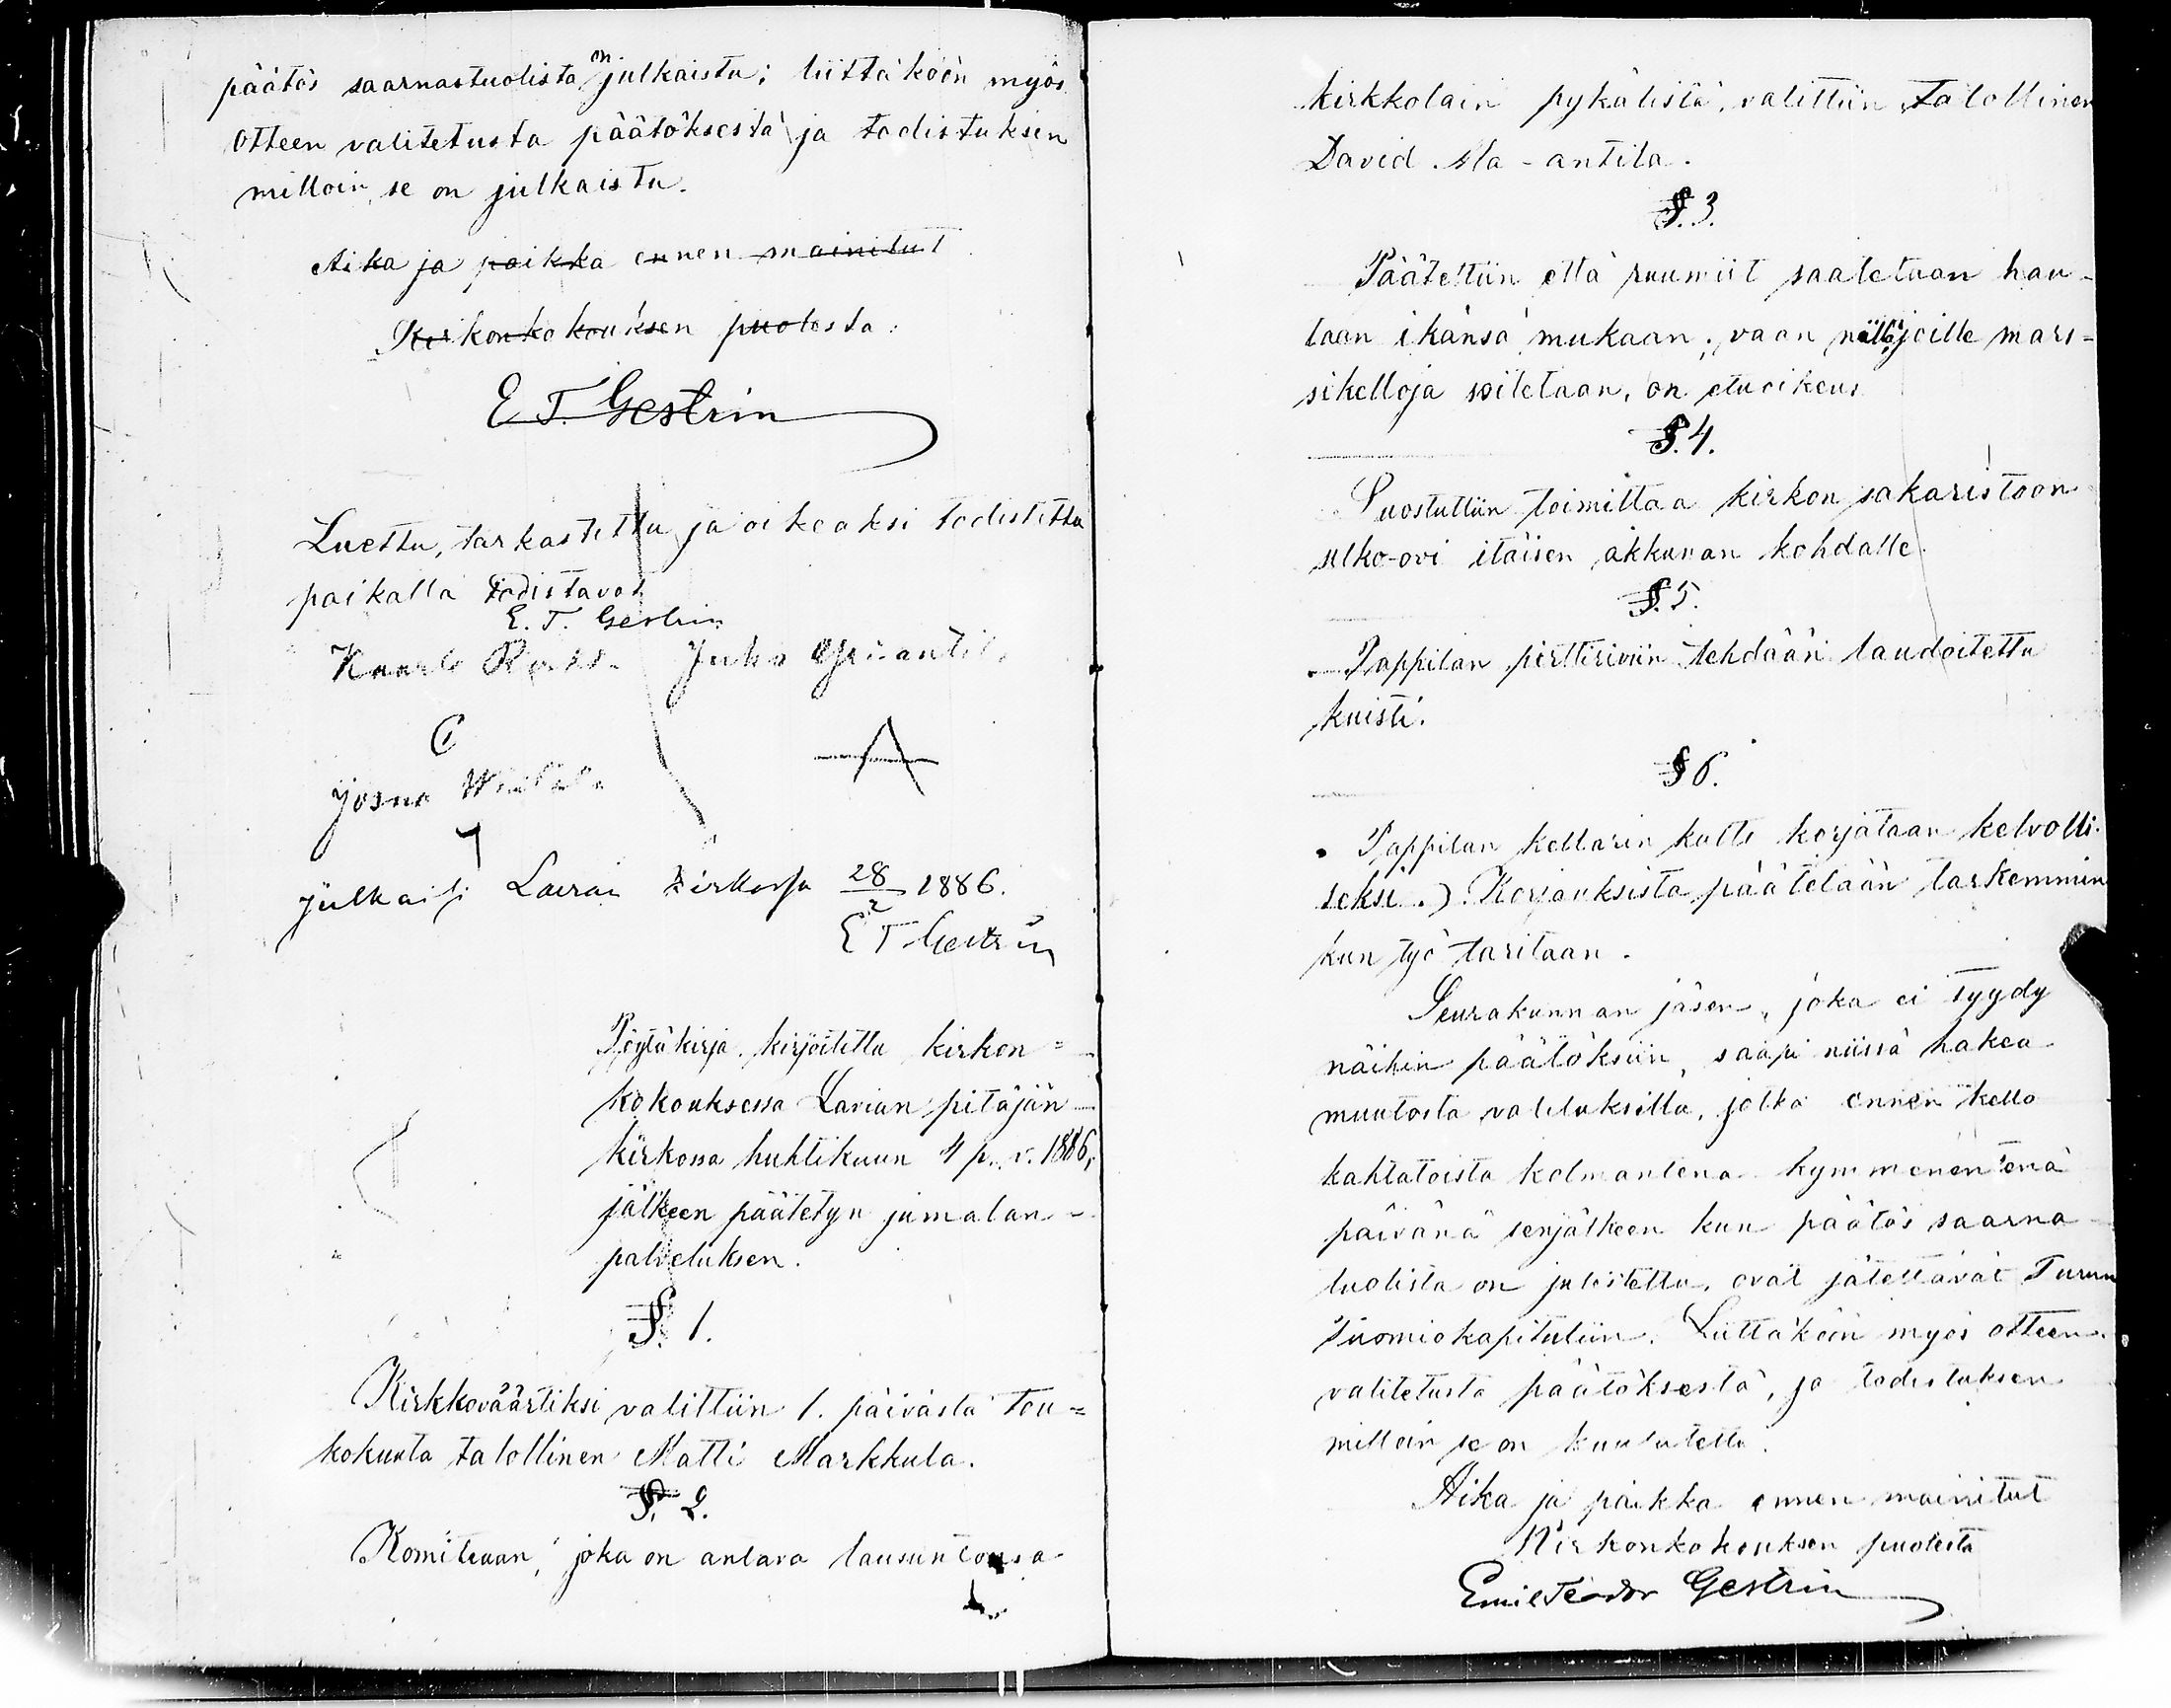 päätös saarnastuolista on julkaistu; liittäköön myös
otteen valitetusta päätöksestä ja todistuksen
milloin se on julkaistu.
Aika ja paikka ennen mainitut
Kirkonkokouksen puolesta:
E. T. Gestrin
Luettu, tarkastettu ja oikeaksi todistettu
paikalla todistavat
E. T. Gestrin
Kaarlo Juha Yli-antila
Josua
julkaisi Lavian kirkossa 28/2 1886.
E T Gestrin
Pöytäkirja, kirjoitettu kirkon=
kokouksessa Lavian pitäjän
kirkossa huhtikuun 4 p. v. 1886,
jälkeen päätetyn jumalan-
palveluksen.
§. 1.
Kirkkoväärtiksi valittiin 1. päivästä tou=
kokuuta talollinen Matti Markkula.
§. 2.
Komiteaan, joka on antava lausuntonsa
kirkkolain pykälistä, valittiin talollinen
David Ala-antila.
§. 3.
Päätettiin että ruumiit saatetaan hau-
taan ikänsä mukaan; vaan niillä, joille mars=
sikelloja soitetaan, on etuoikeus
§. 4.
Suostuttiin toimittaa kirkon sakaristoon
ulko-ovi itäisen akkunan kohdalle.
§. 5.
Pappilan pirttiriviin tehdään laudoitettu
kuisti.
§ 6.
Pappilan kellarin katto korjataan kelvolli-
seksi.) Korjauksista päätetään tarkemmin
kun työ taritaan.
Seurakunnan jäsen, joka ei tyydy
näihin päätöksiin, saapi niissä hakea
muutosta valituksilla, jotka ennen kello
kahtatoista kolmantena kymmenentenä
päivänä senjälkeen kun päätös saarna
tuolista on julistettu, ovat jätettävät Turun
Tuomiokapituliin. Liittäköön myös otteen
valitetusta päätöksestä, ja todistuksen
milloin se on kuulutettu.
Aika ja paikka ennen mainitut
Kirkonkokouksen puolesta
Emil Teodor Gestrin